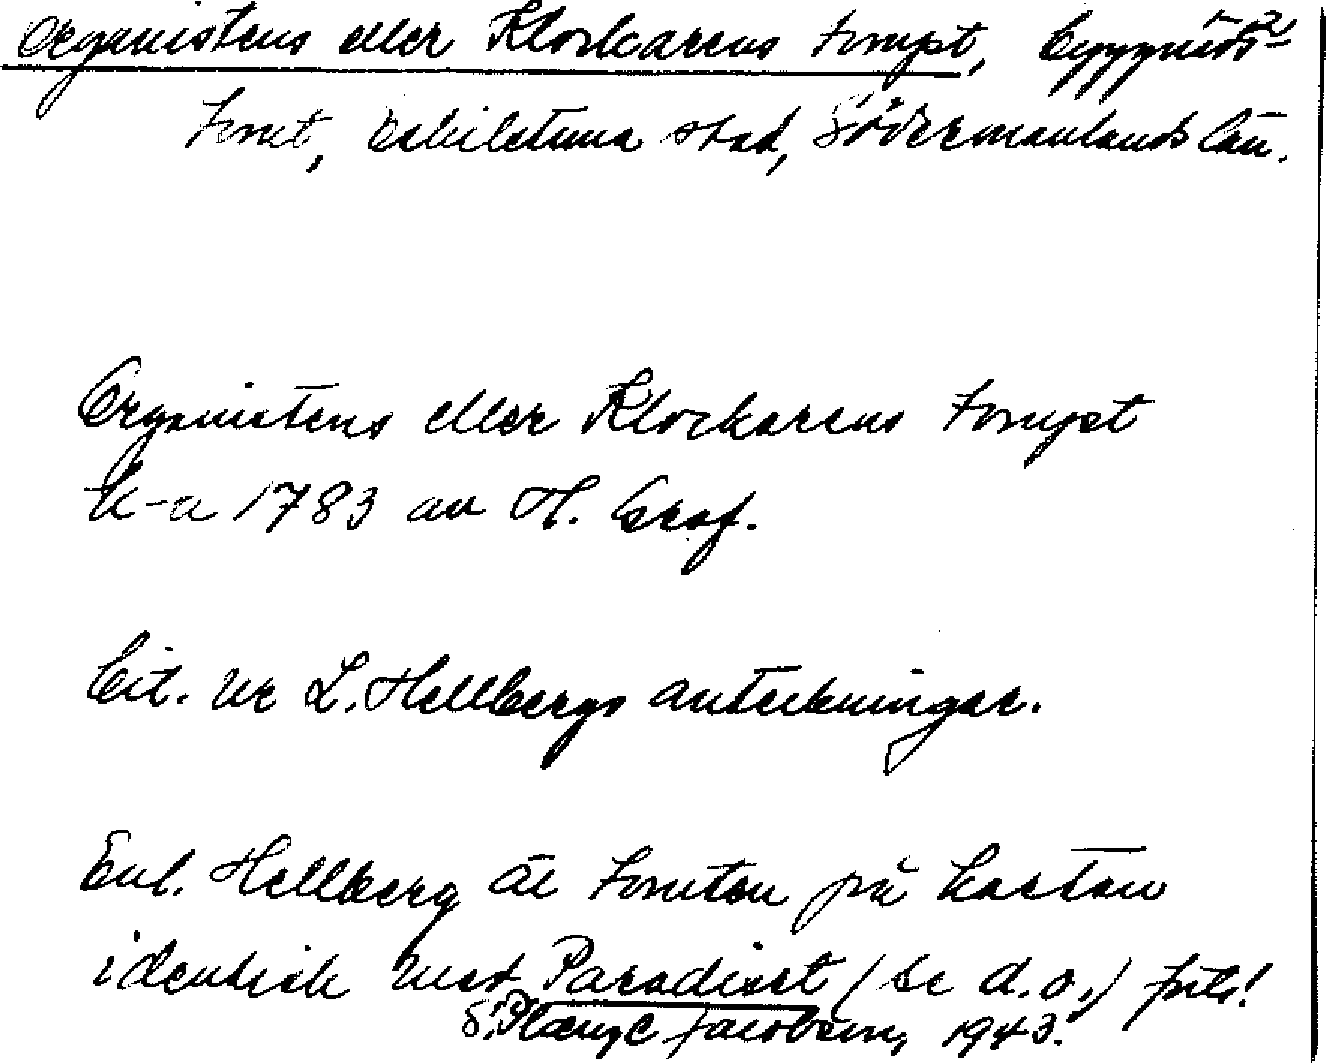 Organistens eller Klockarens tompt, byggnads-
tomt, Eskilstuna stad, Södermanlands län.
Organistens eller Klockarens tompt
k-a 1783 av H. Graf.
Cit. ur L. Hellbergs anteckningar.
Enl. Hellberg är tomten på kartan
identisk med Paradiset (se d.o.)
Jacobsen, 1943.